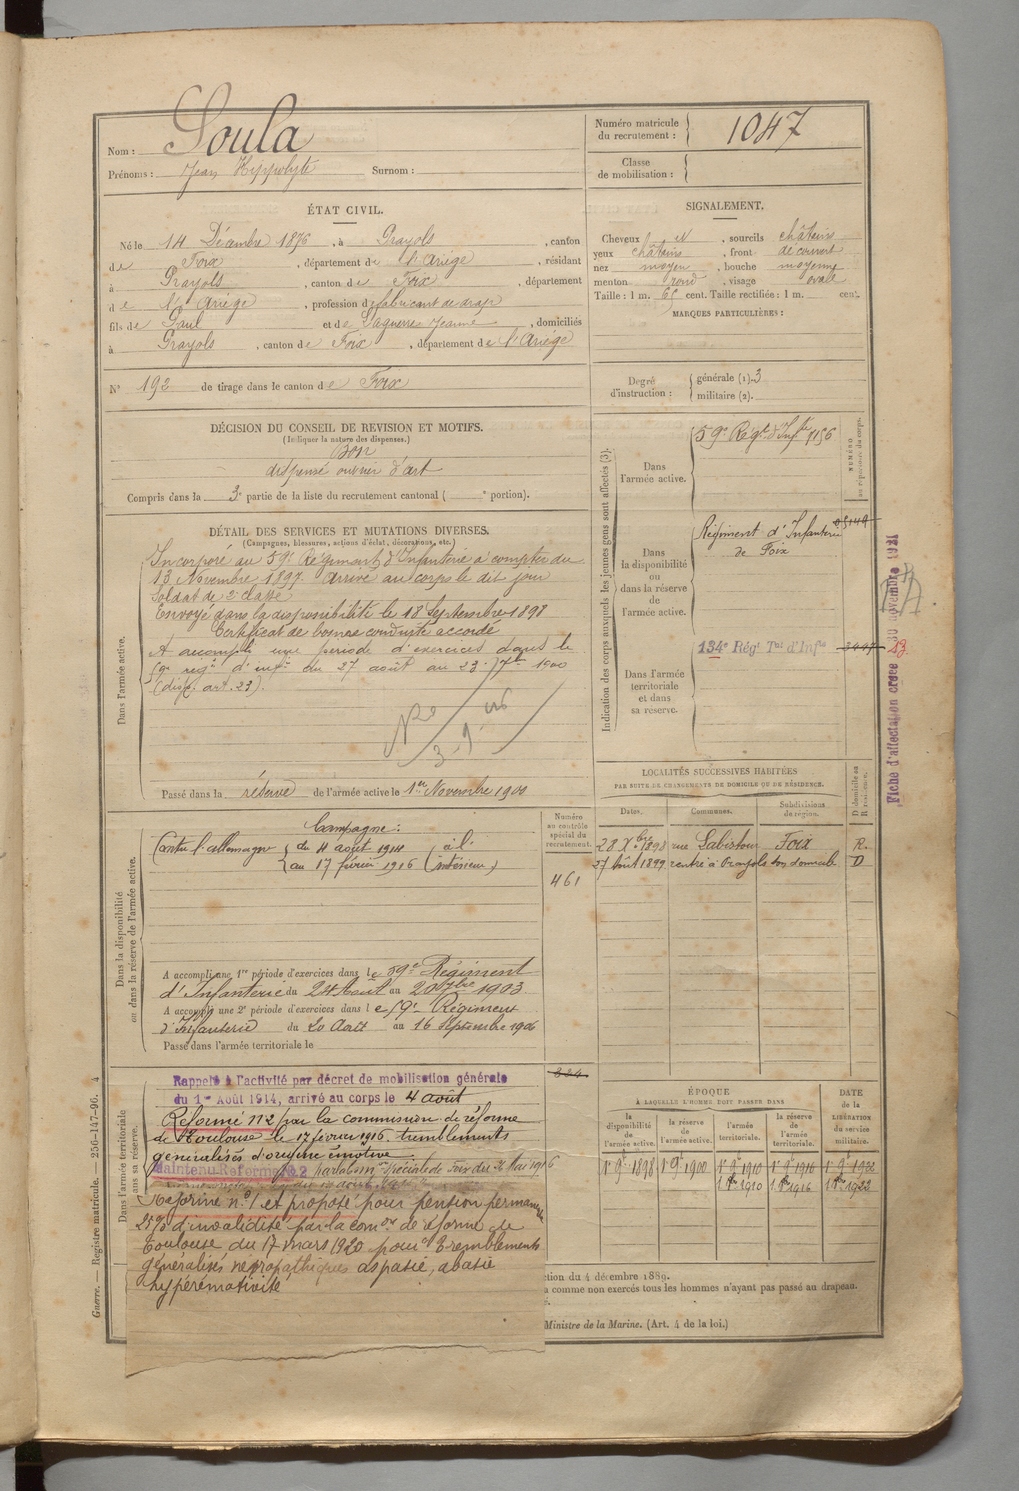 Nom : Soula
Prénoms : Jean Hippolyte Surnom :
Numéro matricule du recrutement : 1047
Classe de mobilisation :
ÉTAT CIVIL.
Né le 14 Décembre 1876, à Prayols, canton
de Foix, département de l'Ariège, résidant
à Prayols, canton de Foix, département
de l'Ariège, profession de fabricant de drap
fils de Paul et de Laguerre Jeanne, domiciliés
à Prayols, canton de Foix, département de l'Ariège
N° 192 de tirage dans le canton de Foix
SIGNALEMENT.
Cheveux ch N, sourcils châtains
yeux châtains, front découvert
nez moyen, bouche moyenne
menton rond, visage ovale
Taille : 1 m. 65 cent. Taille rectifiée : 1 m. cent.
MARQUES PARTICULIÈRES :
Degré d'instruction : générale (1). 3
militaire (2).
DÉCISION DU CONSEIL DE REVISION ET MOTIFS.
(Indiquer la nature des dispenses.)
Bon
dispensé ouvrier d'art
Compris dans la 3e partie de la liste du recrutement cantonal ( e portion).
DÉTAIL DES SERVICES ET MUTATIONS DIVERSES.
(Campagnes, blessures, actions d'éclat, décorations, etc.)
Dans l'armée active.
Incorporé au 59e Régiment d'Infanterie à compter du
13 Novembre 1897. Arrivé au corps le dit jour
Soldat de 2e classe
Envoyé dans la disponibilité le 18 Septembre 1898
Certificat de bonne conduite accordé
A accompli une période d'exercices dans le
59e régt d'infie du 27 août au 23 7bre 1900
(disp. art. 23).
Passé dans la réserve de l'armée active le 1er Novembre 1900
Indication des corps auxquels les jeunes gens sont affectés (3).
Dans l'armée active.
59e Régt d'Infie 9156
NUMÉRO au répertoire du corps.
Dans la disponibilité ou dans la réserve de l'armée active.
Régiment d'Infanterie
de Foix
05149
Dans l'armée territoriale et dans sa réserve.
134e Régt Tal d'Infie
53
Fiche d'affectation créée 30 novembre 1921
LOCALITÉS SUCCESSIVES HABITÉES
PAR SUITE DE CHANGEMENTS DE DOMICILE OU DE RÉSIDENCE.
Dates. Communes. Subdivisions de région. D domicile ou R résidence.
28 Xbre 1898 rue Labistour Foix R.
27 Août 1899 rentré à Prayols son domicile D
Numéro au contrôle spécial du recrutement.
461
Dans la disponibilité ou dans la réserve de l'armée active.
Campagne :
Contre l'allemagne { du 4 août 1914 ( à l'
{ au 17 février 1916 ( intérieur )
A accompli une 1re période d'exercices dans le 59e Régiment
d'Infanterie du 24 Août au 20 7bre 1903
A accompli une 2e période d'exercices dans le 59e Régiment
d'Infanterie du 20 Août au 16 Septembre 1906
Passé dans l'armée territoriale le
Dans l'armée territoriale et dans sa réserve.
Rappelé à l'activité par décret de mobilisation générale
du 1er Août 1914, arrivé au corps le 4 août
Réformé n°2 par la commission de réforme
de Toulouse le 17 février 1916. tremblements
généralisés d'origine émotive
Maintenu Réformé n° 2 par la comon spéciale de Foix du 26 Mai 1916
Réformé n° 1 et proposé pour pension permanente
25% d'invalidité par la comon de réforme de
Toulouse du 17 mars 1920 pour tremblements
généralisés névropathiques astasie, abasie
hyperémotivité
ÉPOQUE
À LAQUELLE L'HOMME DOIT PASSER DANS
la disponibilité de l'armée active. la réserve de l'armée active. l'armée territoriale. la réserve de l'armée territoriale.
DATE de la LIBÉRATION du service militaire.
1er 9bre 1898 1er 9bre 1900 1er 9bre 1910 1er 9bre 1916 1er 9bre 1922
1er 8bre 1910 1er 8bre 1916 1er 8bre 1922
ction du 4 décembre 1889.
a comme non exercés tous les hommes n'ayant pas passé au drapeau.
é.
Ministre de la Marine. (Art. 4 de la loi.)
Guerre. — Registre matricule. — 256-147-96. 4